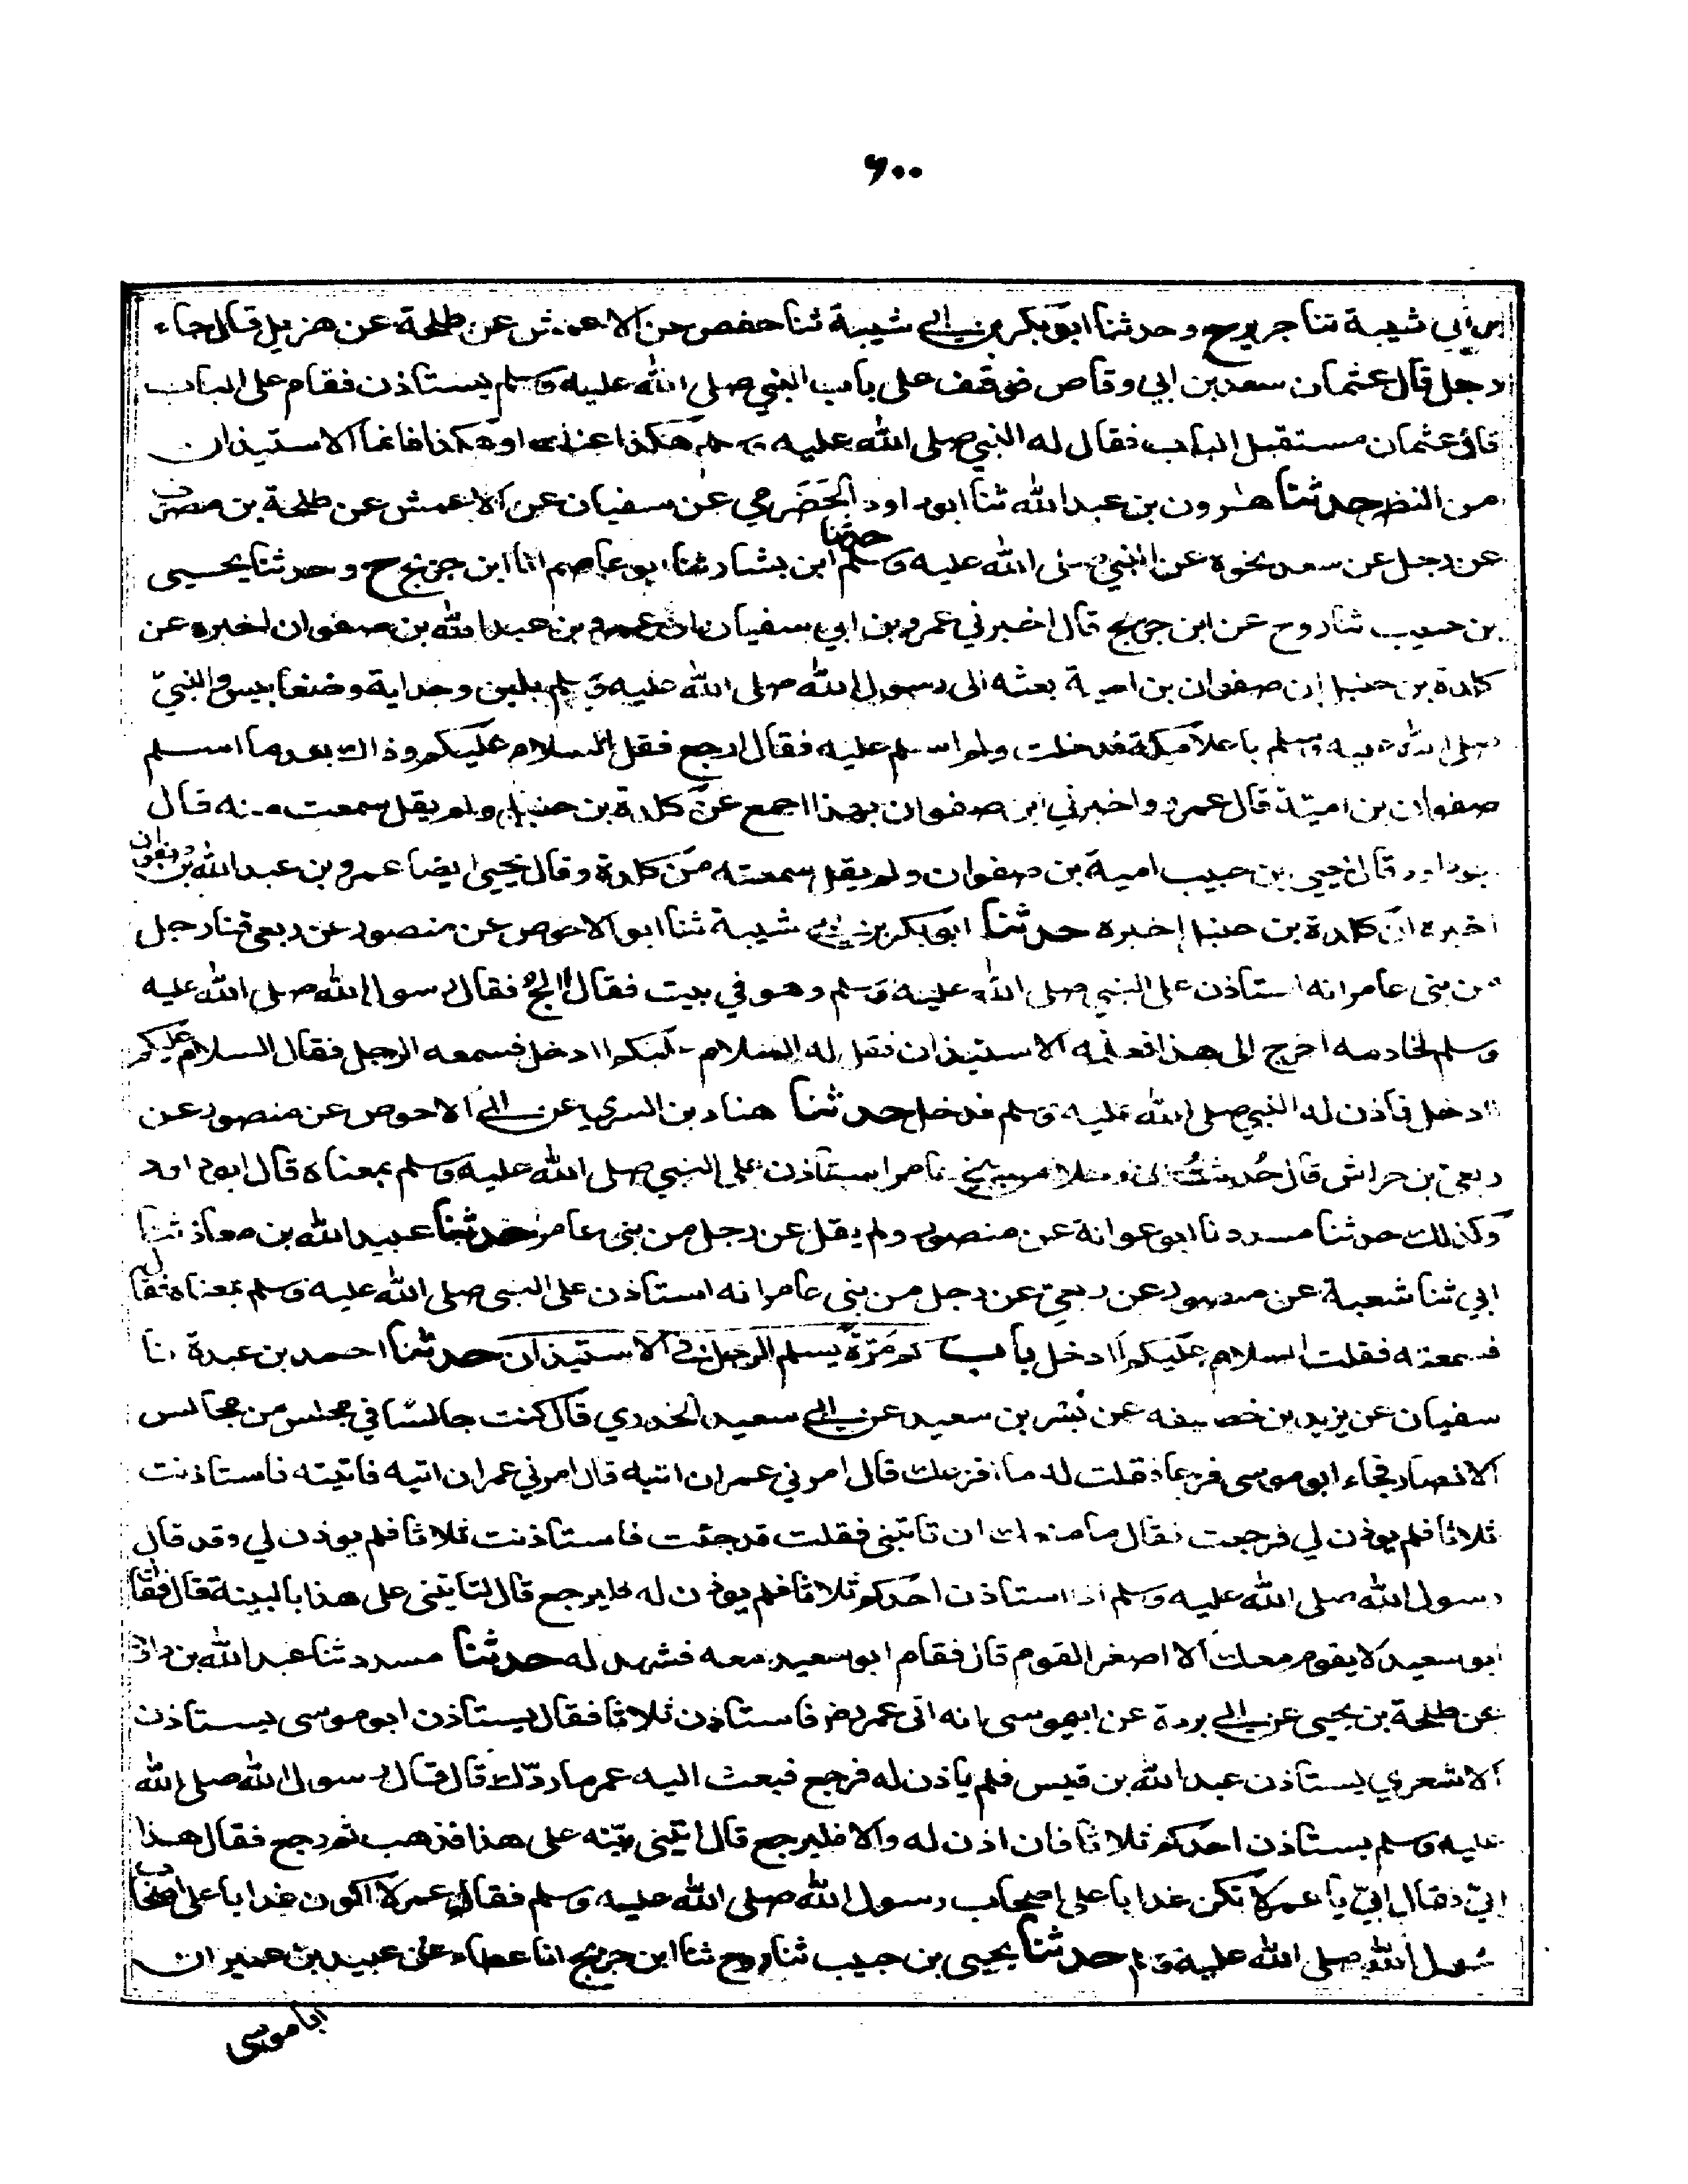 ٦٠٠
بن أبي شيبة ثنا جرير ح وحدثنا ابو بكر بن ابي شيبة ثنا حفص عن الاعمش عن طلحة عن هزيل قال جاء
رجل قال عثمان سعد بن ابي وقاص فوقف على باب النبي صلى الله عليه وسلم يستاذن فقام على الباب
قال عثمان مستقبل الباب فقال له النبي صلى الله عليه وسلم هكذا عنك او هكذا فانما الاستيذان
من النظر حدثنا هٰرون بن عبد الله ثنا ابو داود الحَضَرمي عن سفيان عن الاعمش عن طلحة بن مصرف
عن رجل عن سعد نحوه عن النبي صلى الله عليه وسلم حدثنا ابن بشار ثنا ابو عاصم انا ابن جريج ح وحدثنا يحيى
بن حبيب ثنا روح عن ابن جريج قال اخبرني عمرو بن ابي سفيان ان عمرو بن عبد الله بن صفوان اخبره عن
كلدة بن حنبل ان صفوان بن امية بعثه الى رسول الله صلى الله عليه وسلم بلبن وجداية وضغابيس والنبيّ
صلى الله عليه وسلم باعلا مكة فدخلت ولم اسلم عليه فقال ارجع فقل السلام عليكم وذاك بعد ما اسلم
صفوان بن امية قال عمرو واخبرني ابن صفوان بهذا اجمع عن كلدة بن حنبل ولم يقل سمعت منه قال
بو داود قال يحيى بن حبيب امية بن صفوان ولم يقل سمعته من كلدة وقال يحيى ايضا عمرو بن عبد الله بن صفوان
اخبره انّ كلدة بن حنبل اخبره حدثنا ابو بكر بن ابي شيبة ثنا ابو الاحوص عن منصور عن ربعي ثنا رجل
من بنى عامر انه استاذن على النبي صلى الله عليه وسلم وهو في بيت فقال االج فقال رسول الله صلى الله عليه
وسلم لخادمه اخرج الى هذا فعلمه الاستيذان فقل له السلام عليكم اادخل فسمعه الرجل فقال السلام عليكم
اادخل فاذن له النبي صلى الله عليه وسلم فدخل حدثنا هناد بن السري عن ابي الاحوص عن منصور عن
ربعي بن حراش قال حُدثتُ ان رجلا من بني عامر استاذن على النبي صلى الله عليه وسلم بمعناه قال ابو داود
وكذلك حدثنا مسدد نا ابو عوانة عن منصور ولم يقل عن رجل من بنى عامر حدثنا عبيد الله بن معاذ ثنا
ابي ثنا شعبة عن منصور عن ربعي عن رجل من بني عامر انه استاذن على النبى صلى الله عليه وسلم بمعناه فقال
فسمعته فقلت السلام عليكم اادخل باب كم مَرّة يسلم الرجل في الاستيذان حدثنا احمد بن عبدة انا
سفيان عن يزيد بن خصيفه عن بُسْر بن سعيد عن ابي سعيد الخدري قال كنت جالسًا في مجلس من مجالس
الانصار فجاء ابو موسى فزعا فقلت له ما افزعك قال امرني عمر ان اتيه قال امرني عمر ان اتيه فاتيته فاستاذنت
ثلاثا فلم يوذن لي فرجعت فقال ما منعك ان تاتينى فقلت قد جئت فاستاذنت ثلاثا فلم يوذن لي وقد قال
رسول الله صلى الله عليه وسلم اذا استاذن احدكم ثلاثا فلم يوذن له فليرجع قال لتاتينى على هذا بالبينة قال فقال
ابو سعيد لا يقوم معك الا اصغر القوم قال فقام ابو سعيد معه فشهد له حدثنا مسدد ثنا عبد الله بن داود
عن طلحة بن يحيى عن ابي بردة عن ابى موسى انه اتى عمر رضـ فاستاذن ثلاثا فقال يستاذن ابو موسى يستاذن
الاشعري يستاذن عبد الله بن قيس فلم ياذن له فرجع فبعث اليه عمر ما ردّك قال قال رسول الله صلى الله
عليه وسلم يستاذن احدكم ثلاثا فان اذن له والا فليرجع قال ائتنى ببيّنه على هذا فذهب ثم رجع فقال هذا
ابيّ فقال ابيّ يا عمر لا تكن عذابا على اصحاب رسول الله صلى الله عليه وسلم فقال عمر لا اكون عذابا على اصحاب
رسول الله صلى الله عليه وسلم حدثنا يحيى بن حبيب ثنا روح ثنا ابن جريج انا عطاء عن عبيد بن عمير ان
ابا موسى